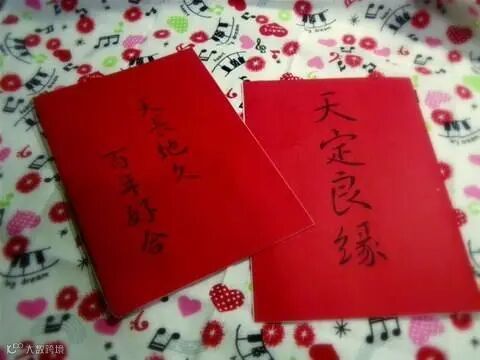 天长地久
百年好合
天定良缘
by dream
大数跨境